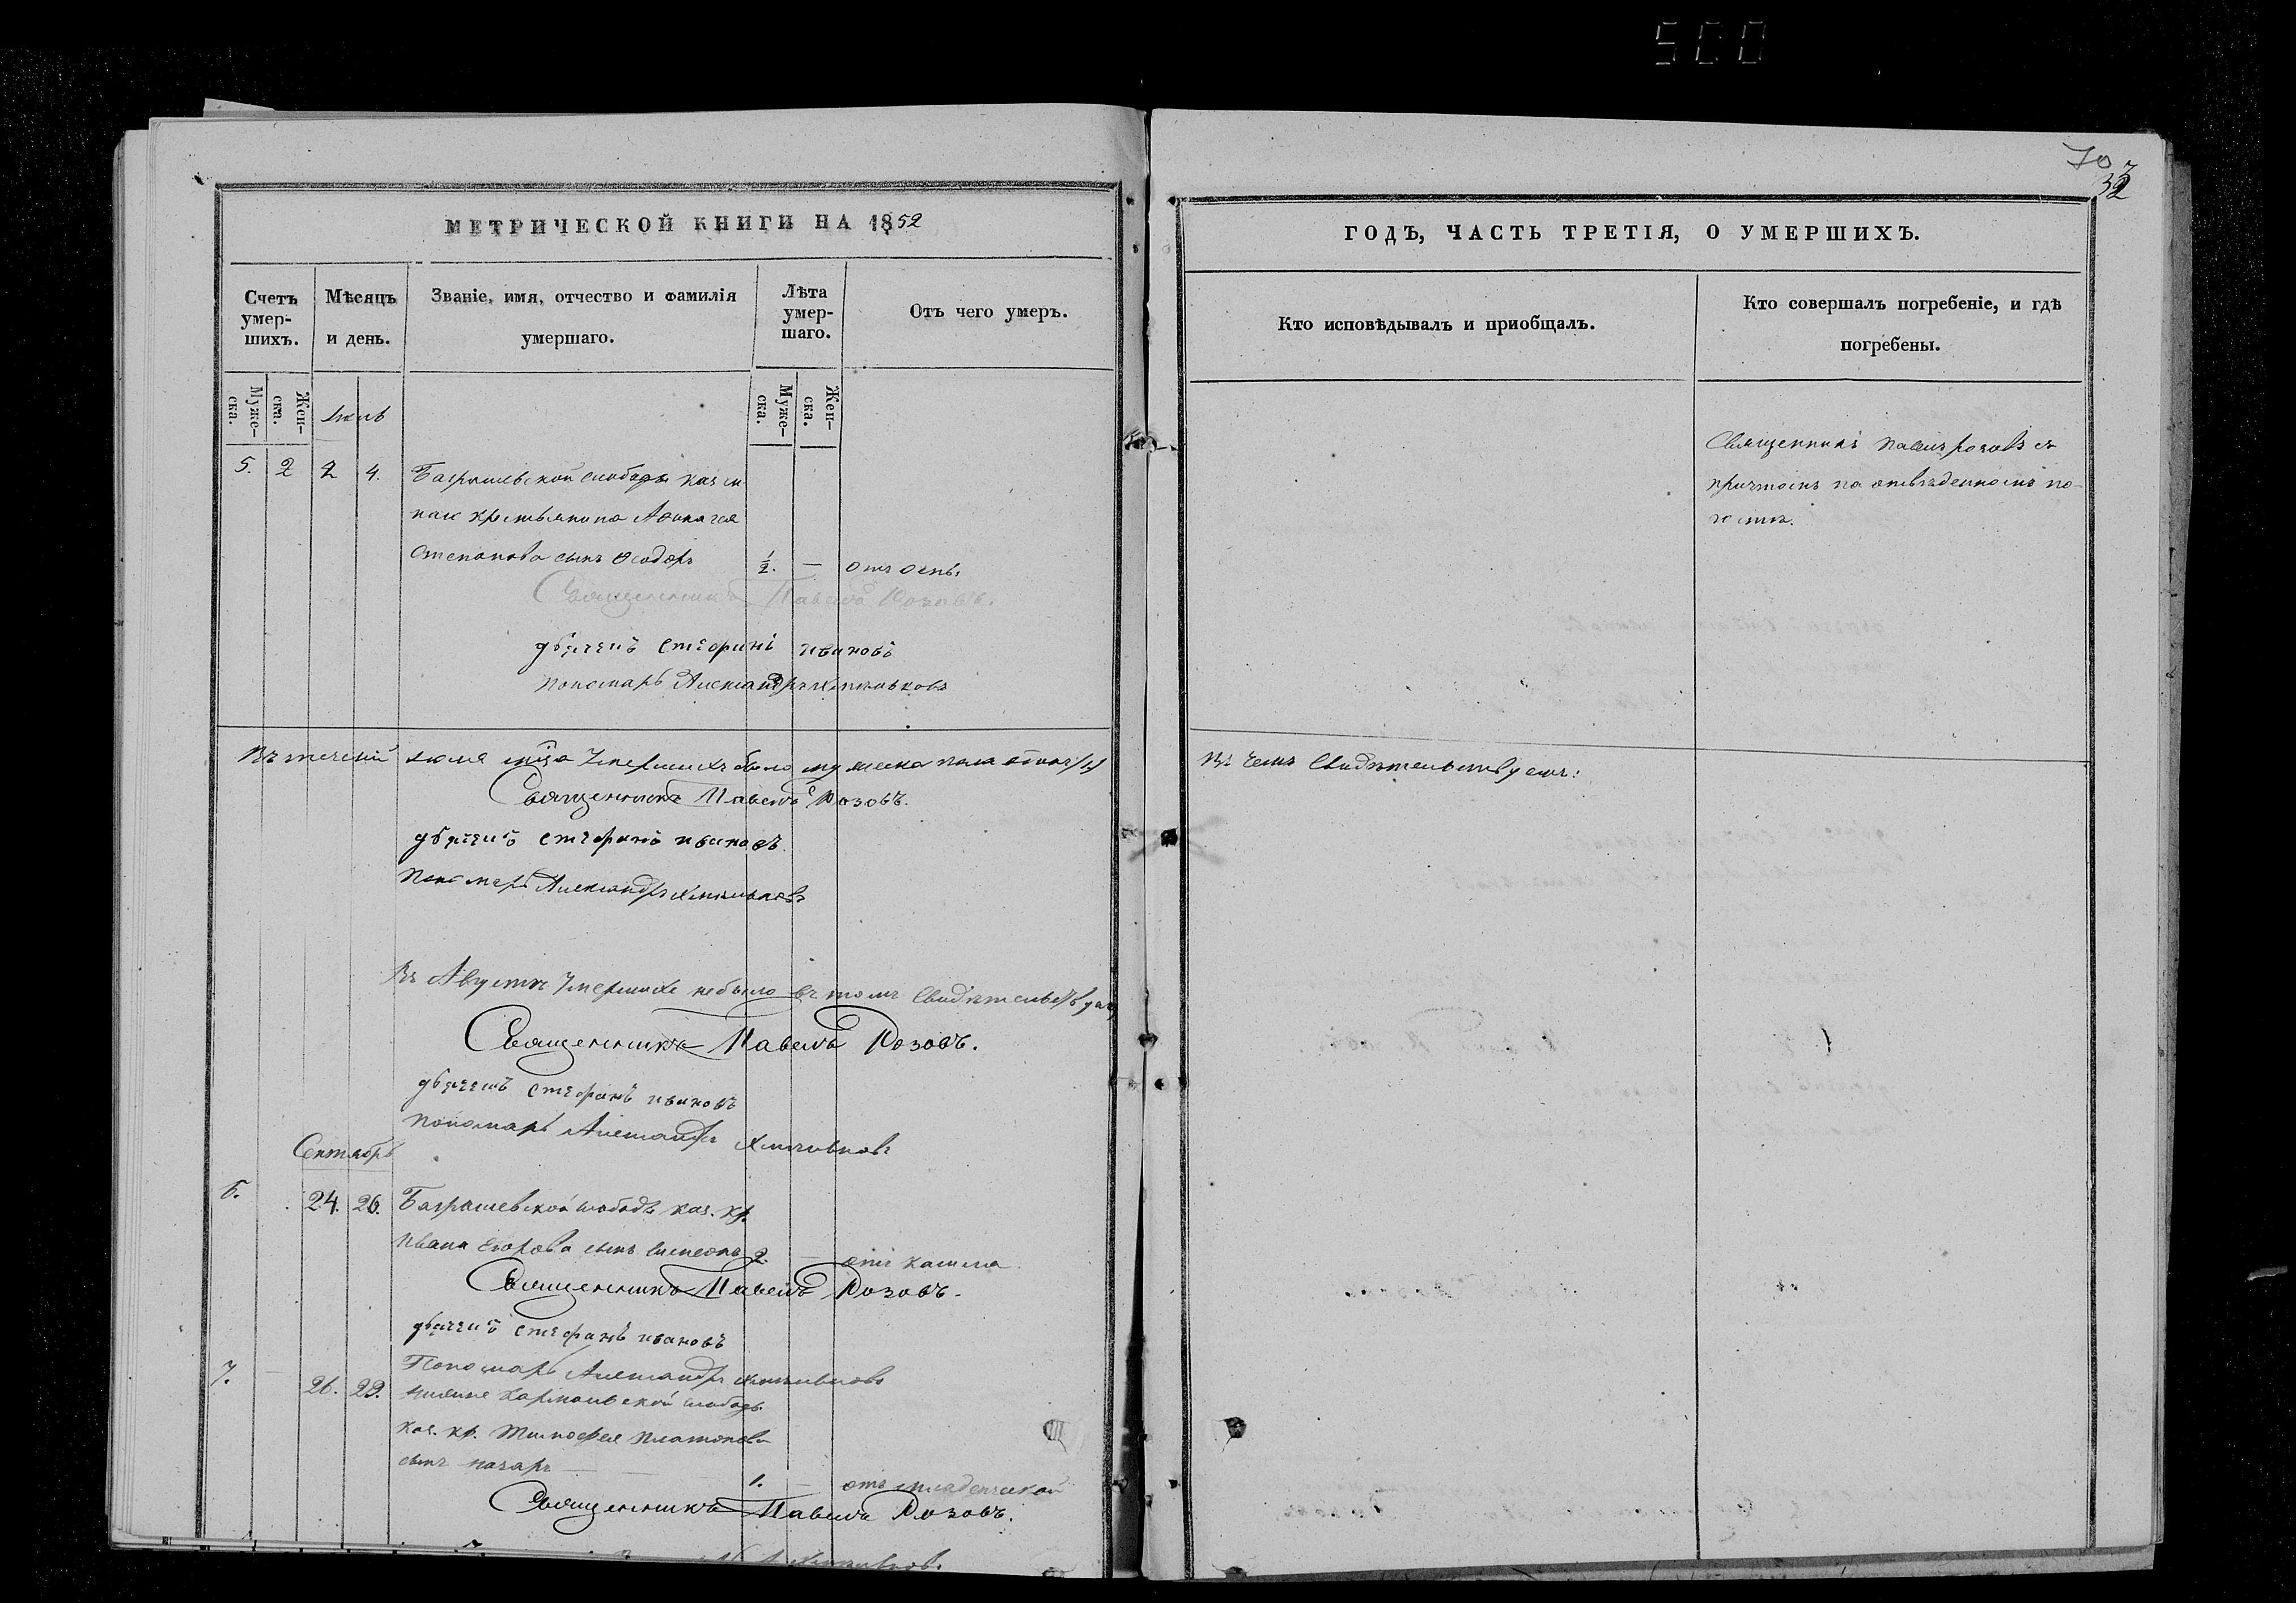 500
70
32
МЕТРИЧЕСКОЙ КНИГИ НА 1852
ГОДЪ, ЧАСТЬ ТРЕТІЯ, О УМЕРШИХЪ.
Счетъ умер-шихъ.
Мѣсяцъ и день.
Званіе, имя, отчество и фамилія умершаго.
Лѣта умер-шаго.
Отъ чего умеръ.
Кто исповѣдывалъ и приобщалъ.
Кто совершалъ погребеніе, и гдѣ погребены.
Муже-ска.
Жен-ска.
Муже-ска.
Жен-ска.
5. 2 2 4. слободы
крестьянина
Степанова сынъ Ѳеодоръ 1/2. — отъ оспы
Священникъ Павелъ Розовъ съ
причтомъ на отведенномъ по-
Священникъ Павелъ Розовъ.
дьячекъ Стефанъ Ивановъ
пономарь Александръ
Въ теченіи Іюля мца Умершихъ было мужеска пола
въ чемъ Свидѣтельствуемъ:
Священникъ Павелъ Розовъ.
дьячекъ Стефанъ Ивановъ
Пономарь Александръ
Въ Августѣ Умершихъ небыло въ томъ Свидѣтельствуемъ
Священникъ Павелъ Розовъ.
дьячекъ Стефанъ Ивановъ
пономарь Александръ
Сентябрь
6. 24. 26. слободы каз. кр.
Ивана Егорова сынъ 2. — отъ кашля
Священникъ Павелъ Розовъ.
дьячекъ Стефанъ Ивановъ
Пономарь Александръ
7. 26. 29. слободы
каз. кр. Тимофея Платонова
сынъ Назаръ — 1. — отъ младенческой
Священникъ Павелъ Розовъ.